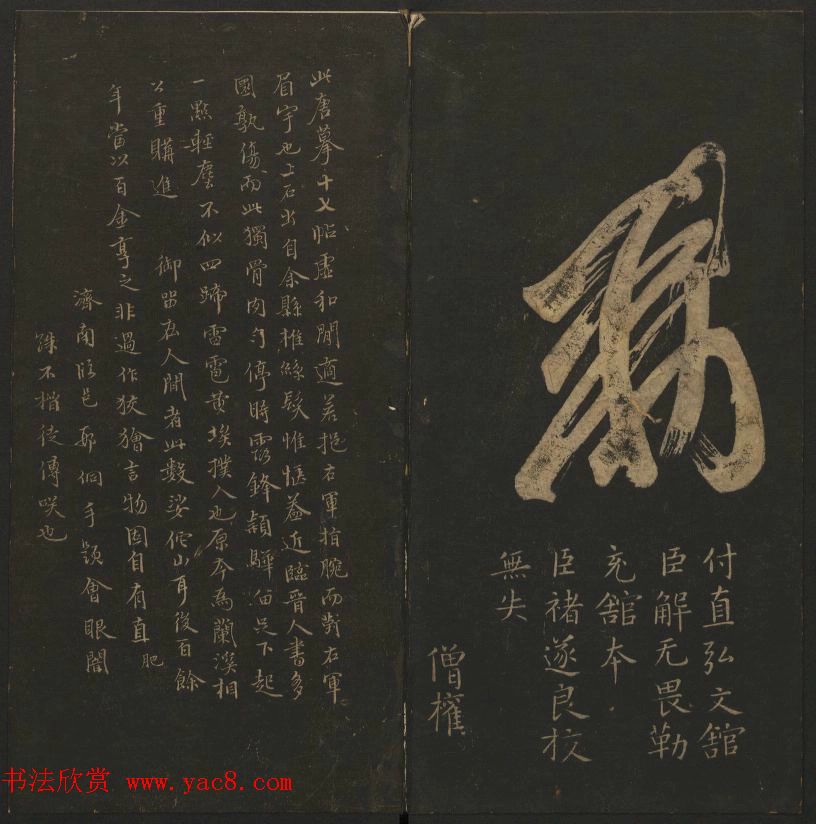 敕
付直弘文館
臣解无畏勒
充舘本
臣褚遂良校
無失
僧權
此唐摹十七帖虛和閒適若挹右軍拍腕而對右軍
眉宇也上石出自余縣推絲髮惟愜蓋近臨晉人書多
團孰傷而此獨骨肉勻停時露鋒穎驊留足下起
一點輕塵不似四蹄雷電黄埃撲人也原本為蘭溪相
公重購進御留在人間者此數娑倕山耳後百餘
年當以百金享之非過作狡獪言物固自有直肥
濟南臨邑邢侗手題會眼闇
殊不楷徒傳咲也
书法欣赏 www.yac8.com